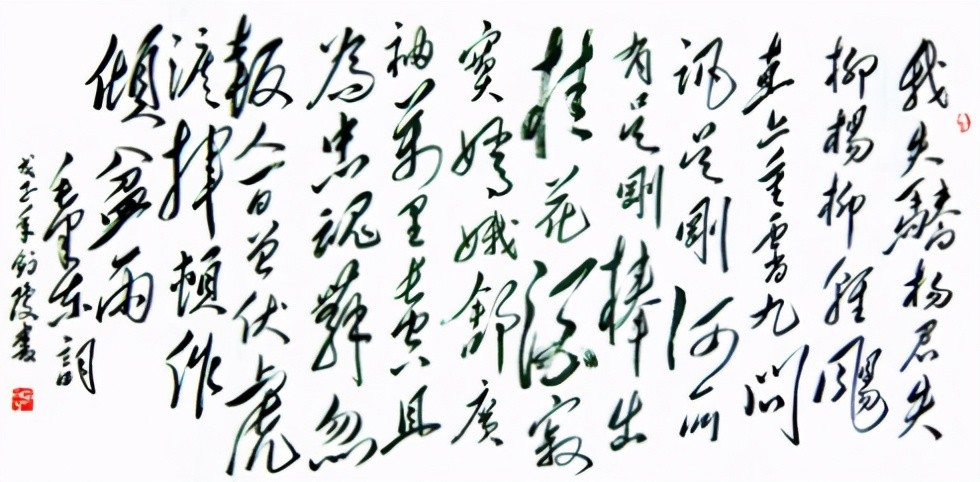 我失驕杨君失
柳楊柳輕颺
直上重霄九問
訊吴剛何所
有吴剛捧出
桂花酒寂
寞嫦娥舒廣
袖萬里長空且
為忠魂舞忽
報人间曾伏虎
淚揮頓作
傾盆雨
毛澤东詞
戊子年書